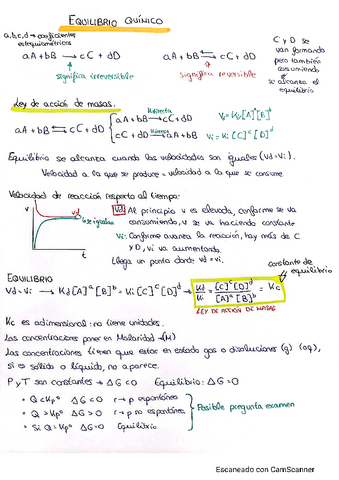 EQUILIBRIO QUÍMICO
a,b,c,d → coeficientes estequiométricos
aA + bB → cC + dD
significa irreversible
aA + bB ⇌ cC + dD
significa reversible
C y D se
van formando
pero también
consumiendo
se alcanza el
equilibrio
Ley de acción de masas.
aA + bB ⇌ cC + dD
aA + bB → cC + dD
cC + dD → aA + bB
Vd = Kd [A]ᵃ [B]ᵇ
Vi = Ki [C]ᶜ [D]ᵈ
Equilibrio se alcanza cuando las velocidades son iguales (Vd = Vi).
Velocidad a la que se produce = velocidad a la que se consume
Velocidad de reacción respecto al tiempo:
V
t
se igualan
Vd: Al principio v es elevada, conforme se va
consumiendo, v se va haciendo constante
Vi: Conforme avanza la reacción, hay más de C
y D, vi va aumentando.
Llega un punto donde vd = vi.
constante de
equilibrio
EQUILIBRIO
Vd = Vi → Kd [A]ᵃ [B]ᵇ = Ki [C]ᶜ [D]ᵈ → Kd/Ki = [C]ᶜ [D]ᵈ / [A]ᵃ [B]ᵇ = Kc
LEY DE ACCIÓN DE MASAS
Kc es adimensional: no tiene unidades.
Las concentraciones poner en Molaridad → (M)
Las concentraciones tienen que estar en estado gas o disoluciones (g) (aq),
si es sólido o líquido, no aparece.
P y T son constantes → ΔG < 0 Equilibrio: ΔG = 0
• Q < Kpº ΔG < 0 r → p espontánea
• Q > Kpº ΔG > 0 r → p no espontánea
• Si Q = Kpº Equilibrio
Posible pregunta examen
Escaneado con CamScanner